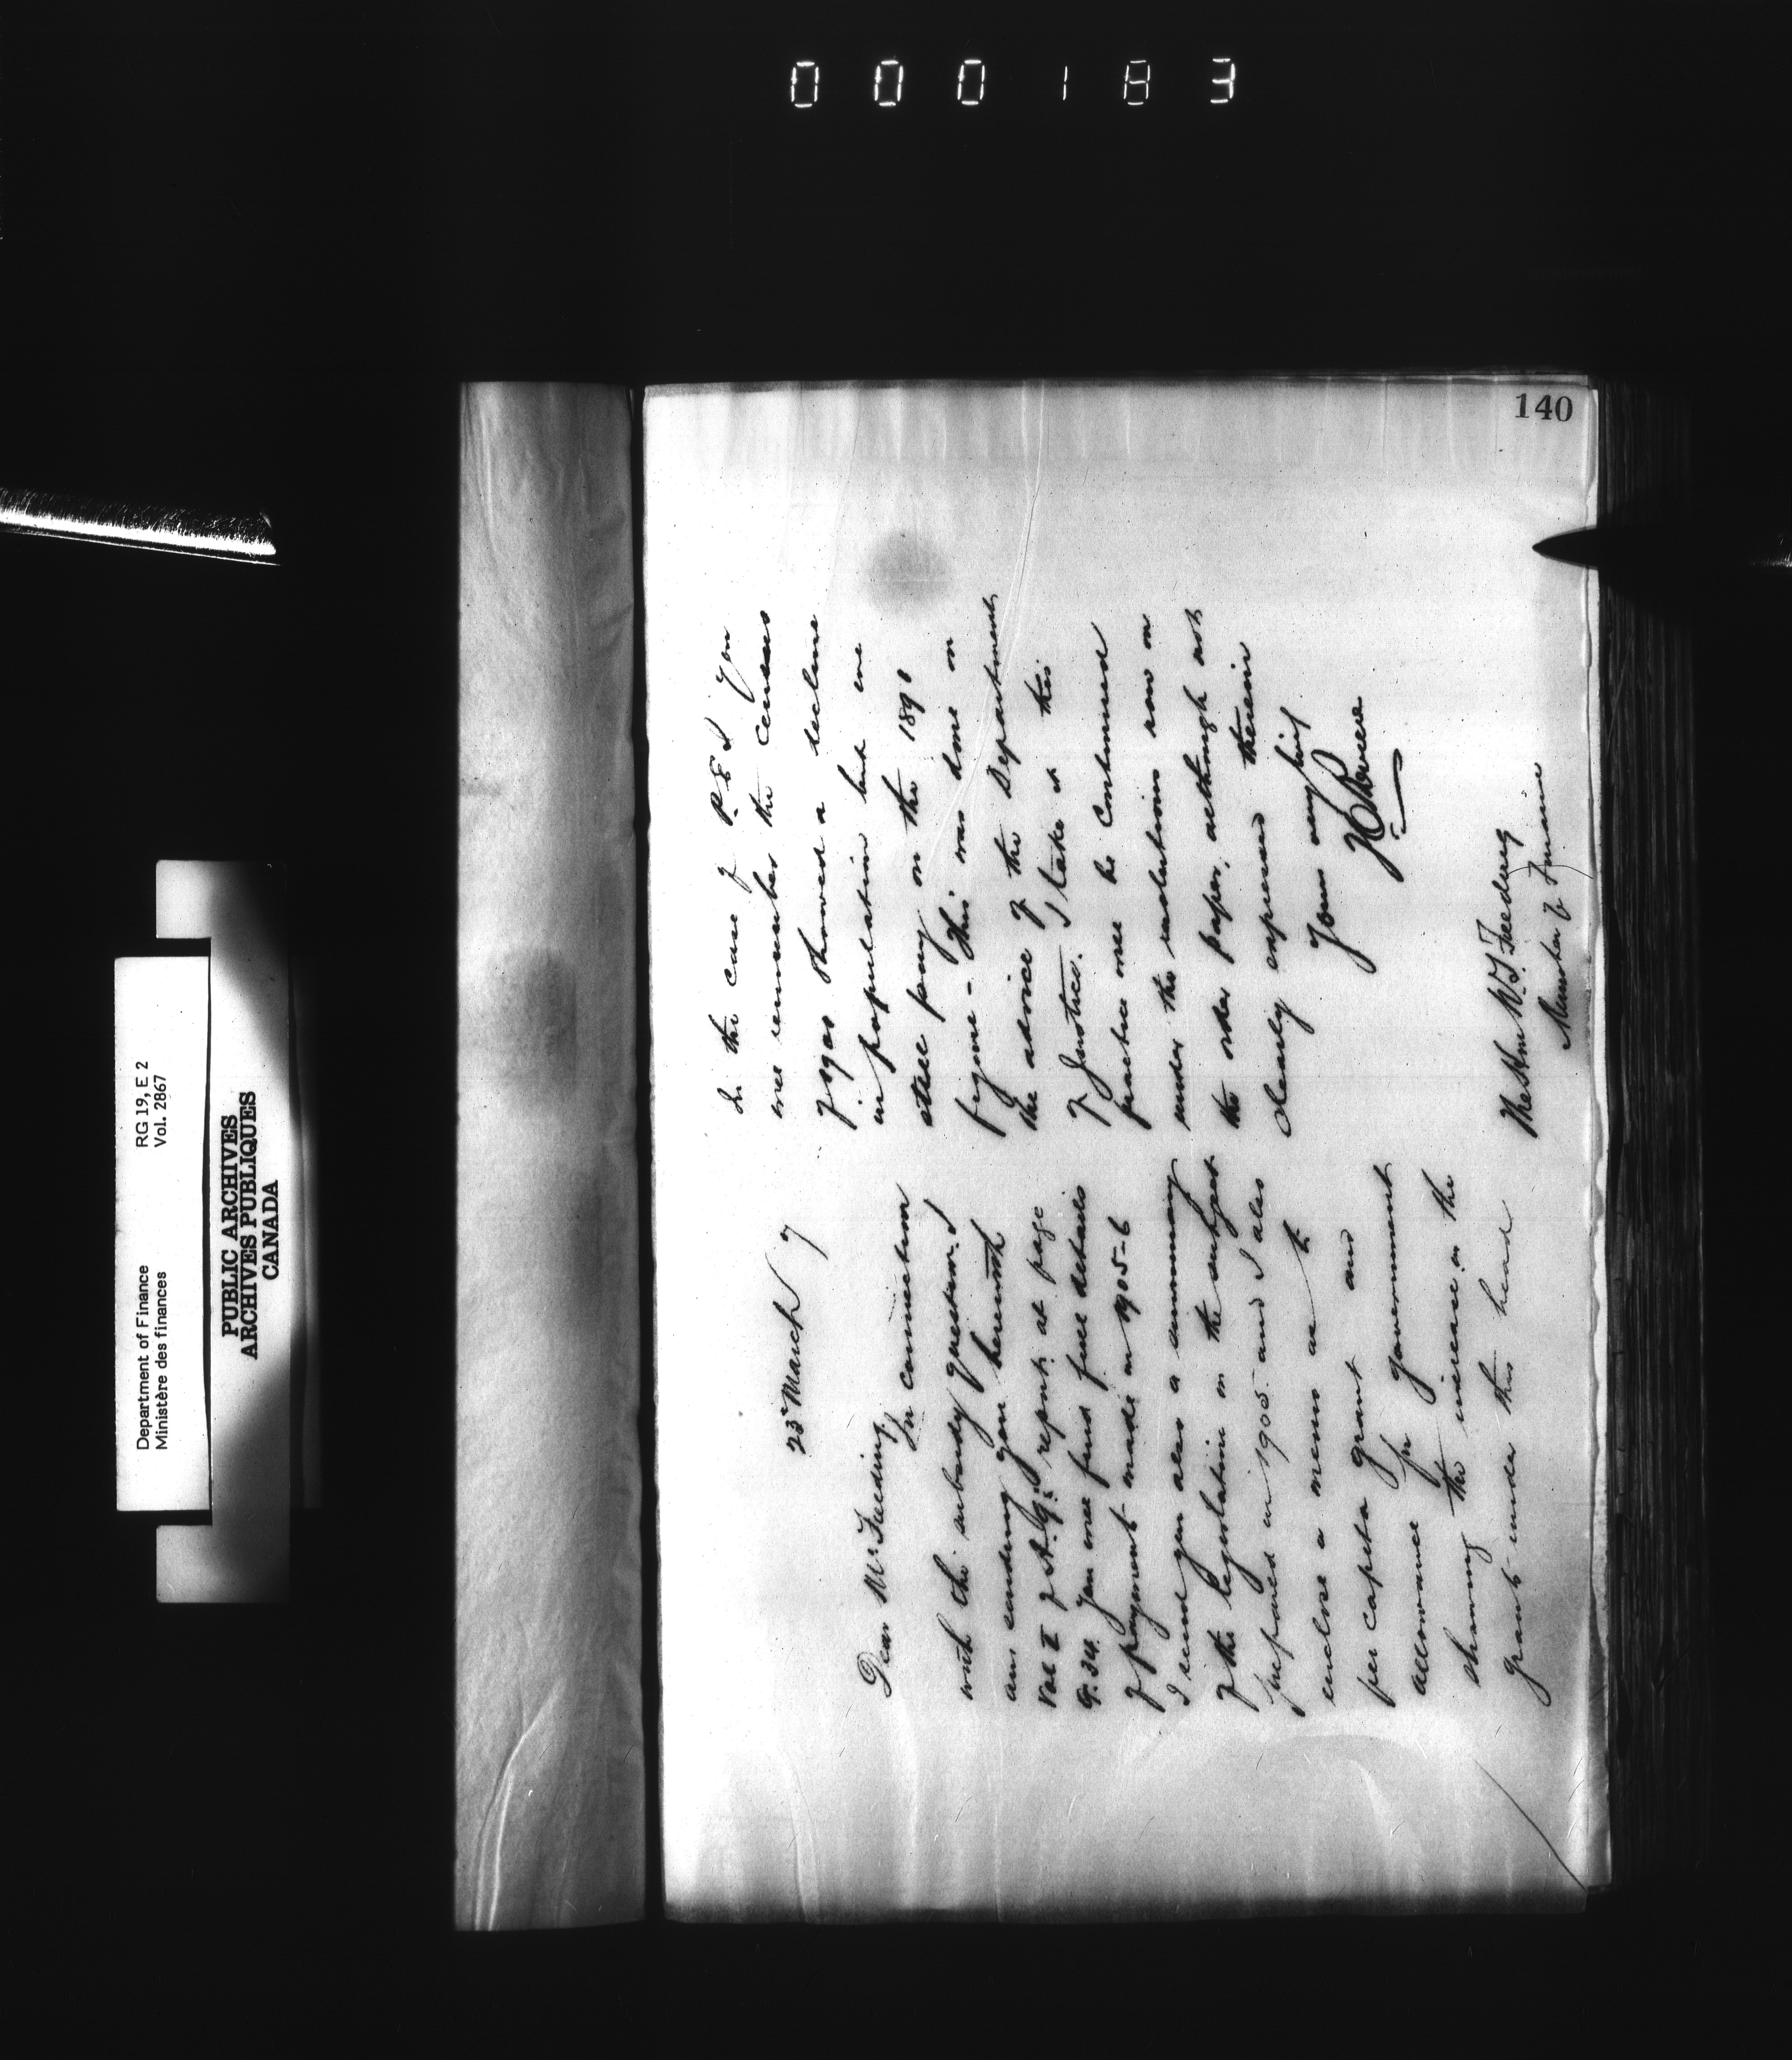 000183
140
Department of Finance RG 19, E 2
Ministère des finances Vol. 2867
PUBLIC ARCHIVES
ARCHIVES PUBLIQUES
CANADA
23 March 7
Dear Mr Fielding,
In connection
with the subsidy question I
am sending you herewith
Vol I of A.G's report at page
G.34. You will find full details
of payment made in 1905-6
I send you also a summary
of the legislation on the subject
prepared in 1905. and I also
enclose a memo as to
per capita grant and
allowance for government
showing the increase in the
grants under this head
In the case of P.E.I you
will remember the census
of 1901 showed a decline
in population but we
still pay on the 1891
figure - This was done on
the advice of the Department
of Justice. I take it this
practice will be continued
under the resolution now on
the order paper, although not
clearly expressed therein
Yours very truly
The Hon W.S. Fielding
Minister of Finance